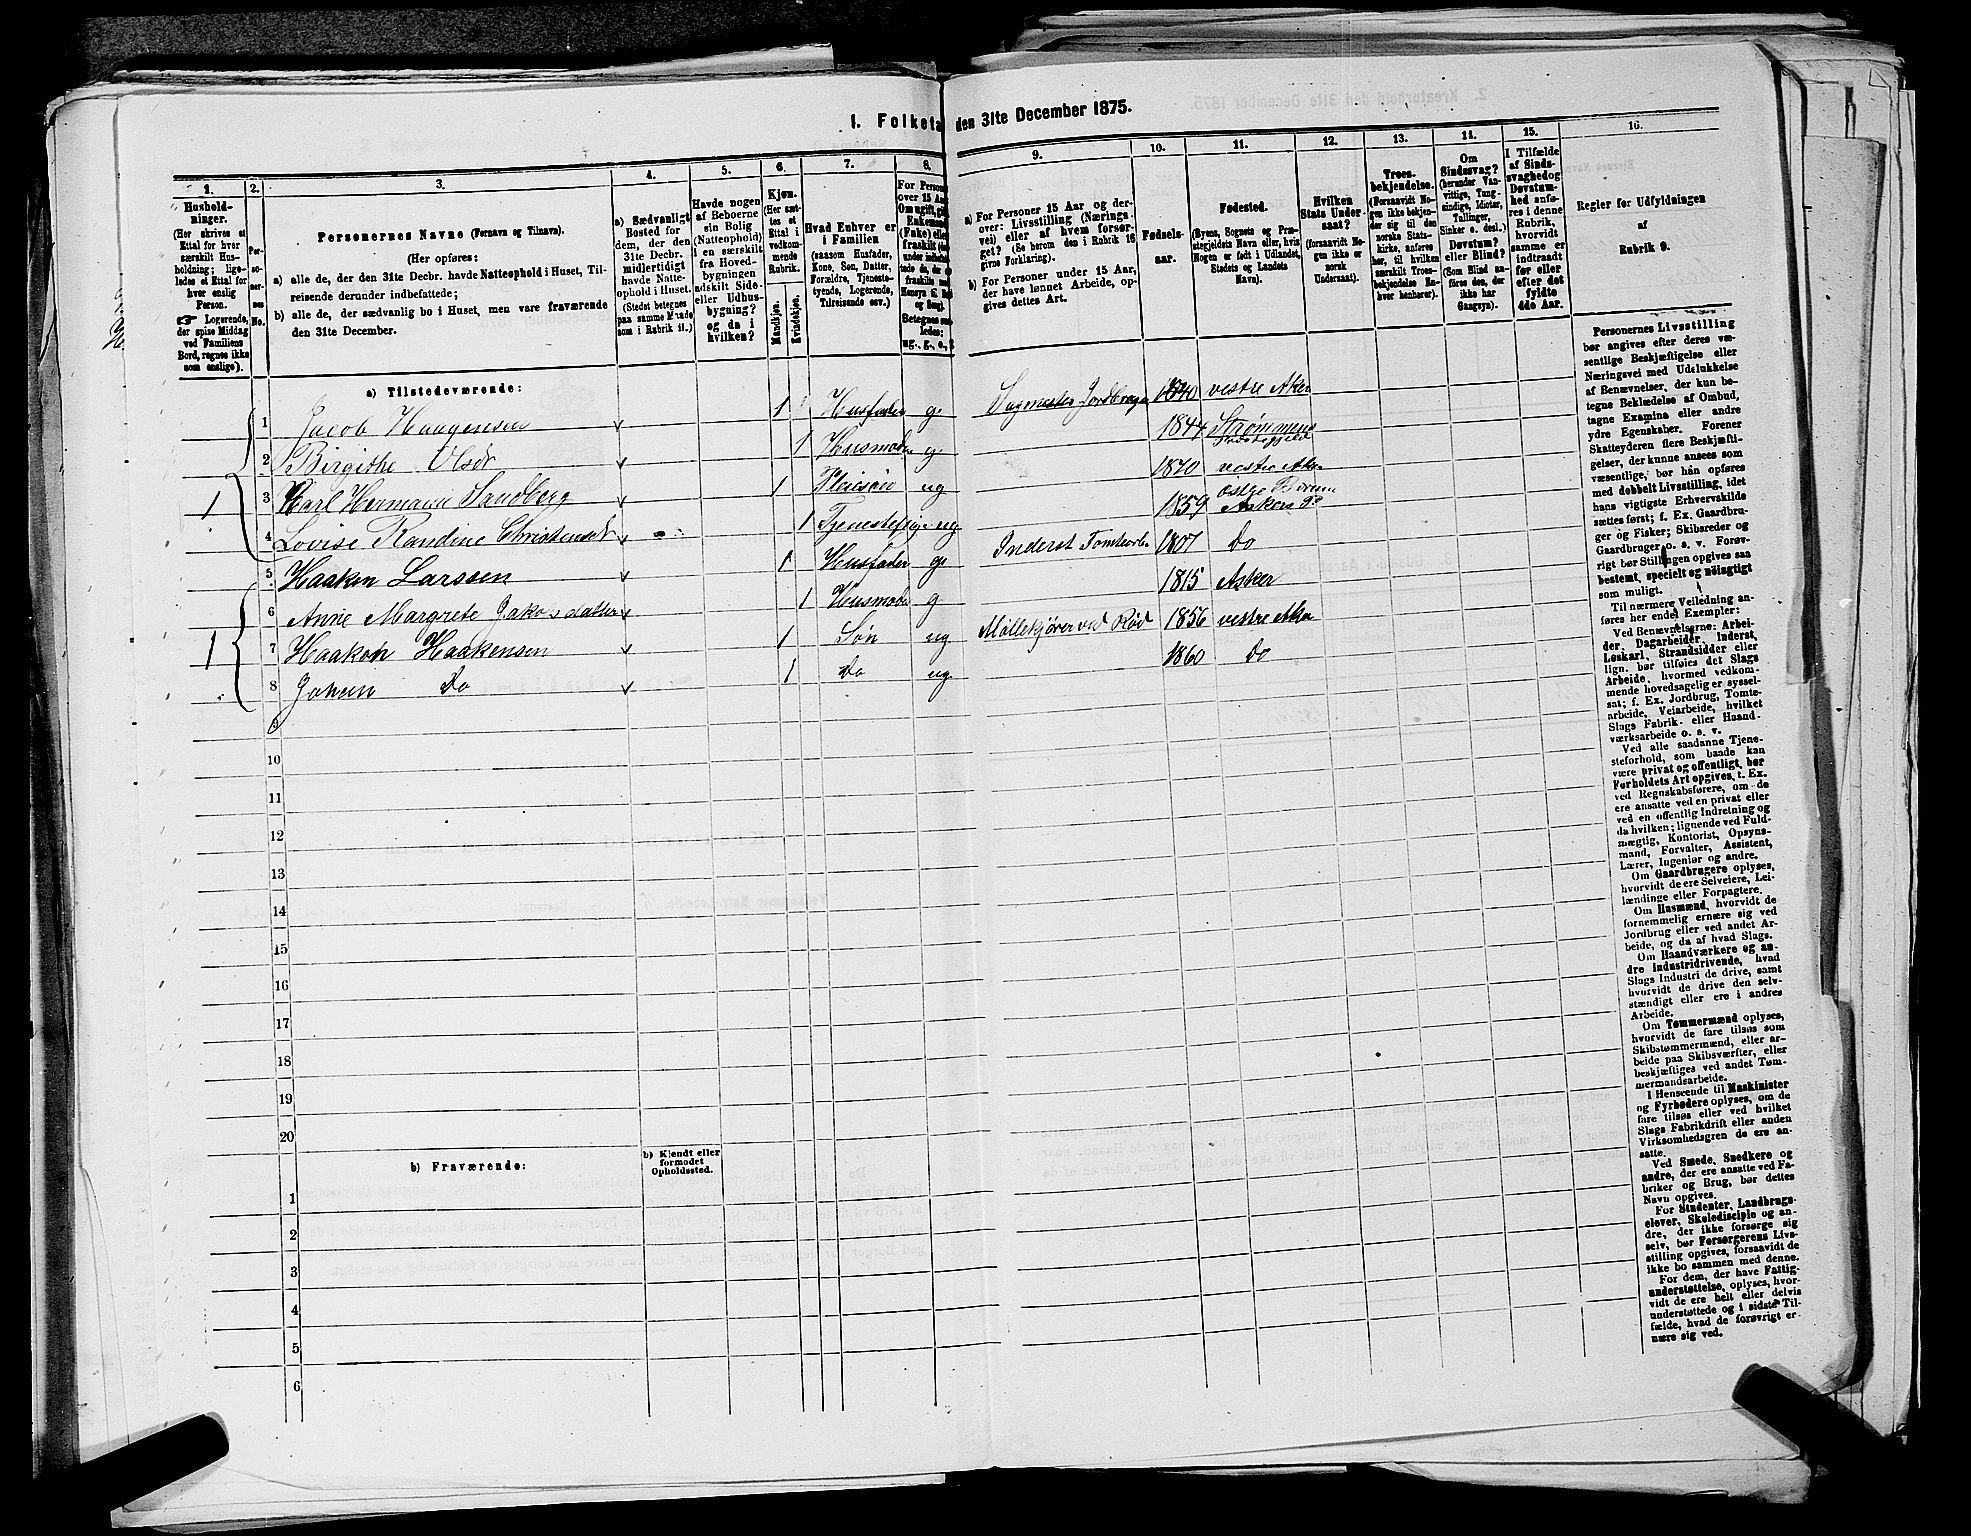 1. Folketa den 31te December 1875.
1. 2. 3. 4. 5. 6. 7. 8. 9. 10. 11. 12. 13. 14. 15. 16.
Hushold-
ninger.
(Her skrives et
Ettal for hver
særskilt Hus-
holdning; lige-
ledes et Ettal for
hver enslig
Person.
☞ Logerende,
der spise Middag
ved Familiens
Bord, regnes ikke
som enslige).
Per-
so-
ner-
nes
No.
Personernes Navne (Fornavn og Tilnavn).
(Her opføres:
a) alle de, der den 31te Decbr. havde Natteophold i Huset, Til-
reisende derunder indbefattede;
b) alle de, der sædvanlig bo i Huset, men vare fraværende
den 31te December.
a) Sædvanligt
Bosted for
dem, der den
31te Decbr.
midlertidigt
havde Natte-
ophold i Huset.
(Stedet betegnes
paa samme Maade
som i Rubrik 11.)
Havde nogen
af Beboerne
sin Bolig
(Natteophold)
i en særskilt
fra Hoved-
bygningen
adskilt Side-
eller Udhus-
bygning?
og da i
hvilken?
Kjøn.
(Her sæt-
tes et
Ettal i
vedkom-
mende
Rubrik.
Mandkjøn.
Kvindekjøn.
Hvad Enhver er
i Familien
(saasom Husfader,
Kone, Søn, Datter,
Forældre, Tjeneste-
tyende, Logerende,
Tilreisende osv.)
For Person
over 15 Aa
Om ugift, gi
Enkeman
(Enke) elle
fraskilt
Betegnes saa-
ledes:
ug., g., e., f.
a) For Personer 15 Aar og der-
over: Livsstilling (Nærings-
vei) eller af hvem forsør-
get? (Se herom den i Rubrik 16
givne Forklaring).
b) For Personer under 15 Aar,
der have lønnet Arbeide, op-
gives dettes Art.
Fødsels-
aar.
Fødested.
(Byens, Sognets og Præ-
stegjeldets Navn eller, hvis
Nogen er født i Udlandet,
Stedets og Landets
Navn).
Hvilken
Stats Under-
saat?
(forsaavidt No-
gen ikke er
norsk
Undersaat).
Troes-
bekjendelse.
(Forsaavidt No-
gen ikke bekjen-
der sig til den
norske Stats-
kirke, anføres
her, til hvilken
særskilt Troes-
bekjendelse En-
hver henhører).
Om
Sindssvag?
(herunder Van-
vittige, Tung-
sindige, Idioter,
Tullinger,
Sinker o. desl.)
Døvstum?
eller Blind?
(Som Blind an-
føres den, der
ikke har
Gangsyn).
I Tilfælde
af Sinds-
svaghed og
Døvstum-
hed anfø-
res i denne
Rubrik,
hvorvidt
samme er
indtraadt
før eller
efter det
fyldte
4de Aar.
Regler for Udfyldningen
af
Rubrik 9.
a) Tilstedeværende:
1 1 Jacob Haagensen v 1 Husfader g Jordbruger 1840 vestre Aker
2 Birgithe Olsdt v 1 Husmoder g 1844 Strømmens
3 Karl Hermann Sandberg v 1 Pleiesøn ug 1870 vestre Aker
4 Lovise Randine Christensdt v 1 Tjenestepige ug 1859 østre Bærum Askers P
1 5 Haaken Larssen v 1 Husfader g Inderst Tomtearb. 1807 Do
6 Anne Margrete Jakobsdatter v 1 Husmoder g 1815 Asker
7 Haakon Haakensen v 1 Søn ug Møllekjører ved Rød 1856 vestre Aker
8 Johan Do v 1 Do ug 1860 Do
9
10
11
12
13
14
15
16
17
18
19
20
b) Fraværende:
b) Kjendt eller
formodet
Opholdssted.
1
2
3
4
5
6
Personernes Livsstilling
bør angives efter deres væ-
sentlige Beskjæftigelse eller
Næringsvei med Udelukkelse
af Benævnelser, der kun be-
tegne Beklædelse af Ombud,
tagne Examina eller andre
ydre Egenskaber. Forener
Skatteyderen flere Beskjæfti-
gelser, der kunne ansees som
væsentlige, bør han opføres
med dobbelt Livsstilling, idet
hans vigtigste Erhvervskilde
sættes først; f. Ex. Gaardbru-
ger og Fisker; Skibsreder og
Gaardbruger o. s. v. Forøv-
rigt bør Stillingen opgives saa
bestemt, specielt og nøiagtigt
som muligt.
Til nærmere Veiledning an-
føres her endel Exempler:
Ved Benævnelserne: Arbei-
der, Dagarbeider, Inderst,
Løskarl, Strandsidder eller
lign. bør tilføies det Slags
Arbeide, hvormed vedkom-
mende hovedsagelig er syssel-
sat; f. Ex. Jordbrug, Tomte-
arbeide, Veiarbeide, hvilket
Slags Fabrik- eller Haand-
værksarbeide o. s. v.
Ved alle saadanne Tjene-
steforhold, som baade kan
være privat og offentligt, bør
Forholdets Art opgives, t. Ex.
ved Regnskabsførere, om de
ere ansatte ved en privat eller
ved en offentlig Indretning og
da hvilken; lignende ved Fuld-
mægtig, Kontorist, Opsyns-
mand, Forvalter, Assistent,
Lærer, Ingeniør og andre.
Om Gaardbrugere oplyses,
hvorvidt de ere Selveiere, Lei-
lændinge eller Forpagtere.
Om Husmænd, hvorvidt de
fornemmelig ernære sig ved
Jordbrug eller ved andet Ar-
beide, og da af hvad Slags.
Om Haandværkere og an-
dre Industridrivende, hvad
Slags Industri de drive, samt
hvorvidt de drive den selv-
stændigt eller ere i andres
Arbeide.
Om Tømmermænd oplyses,
hvorvidt de fare tilsøs som
Skibstømmermænd, eller ar-
beide paa Skibsværfter, eller
beskjæftiges ved andet Tøm-
mermandsarbeide.
I Henseende til Maskinister
og Fyrbødere oplyses, om de
fare tilsøs eller ved hvilket
Slags Fabrikdrift eller anden
Virksomhedsgren de ere an-
satte.
Ved Smede, Snedkere og
andre, der ere ansatte ved Fa-
briker og Brug, bør dettes
Navn opgives.
For Studenter, Landbrugs-
elever, Skoledisciple og an-
dre, der ikke forsørge sig
selv, bør Forsørgerens Livs-
stilling opgives, forsaavidt de
ikke bo sammen med denne.
For dem, der have Fattig-
understøttelse, oplyses, hvor-
vidt de ere helt eller delvis
understøttede og i sidste Til-
fælde, hvad de forøvrigt er-
nære sig ved.